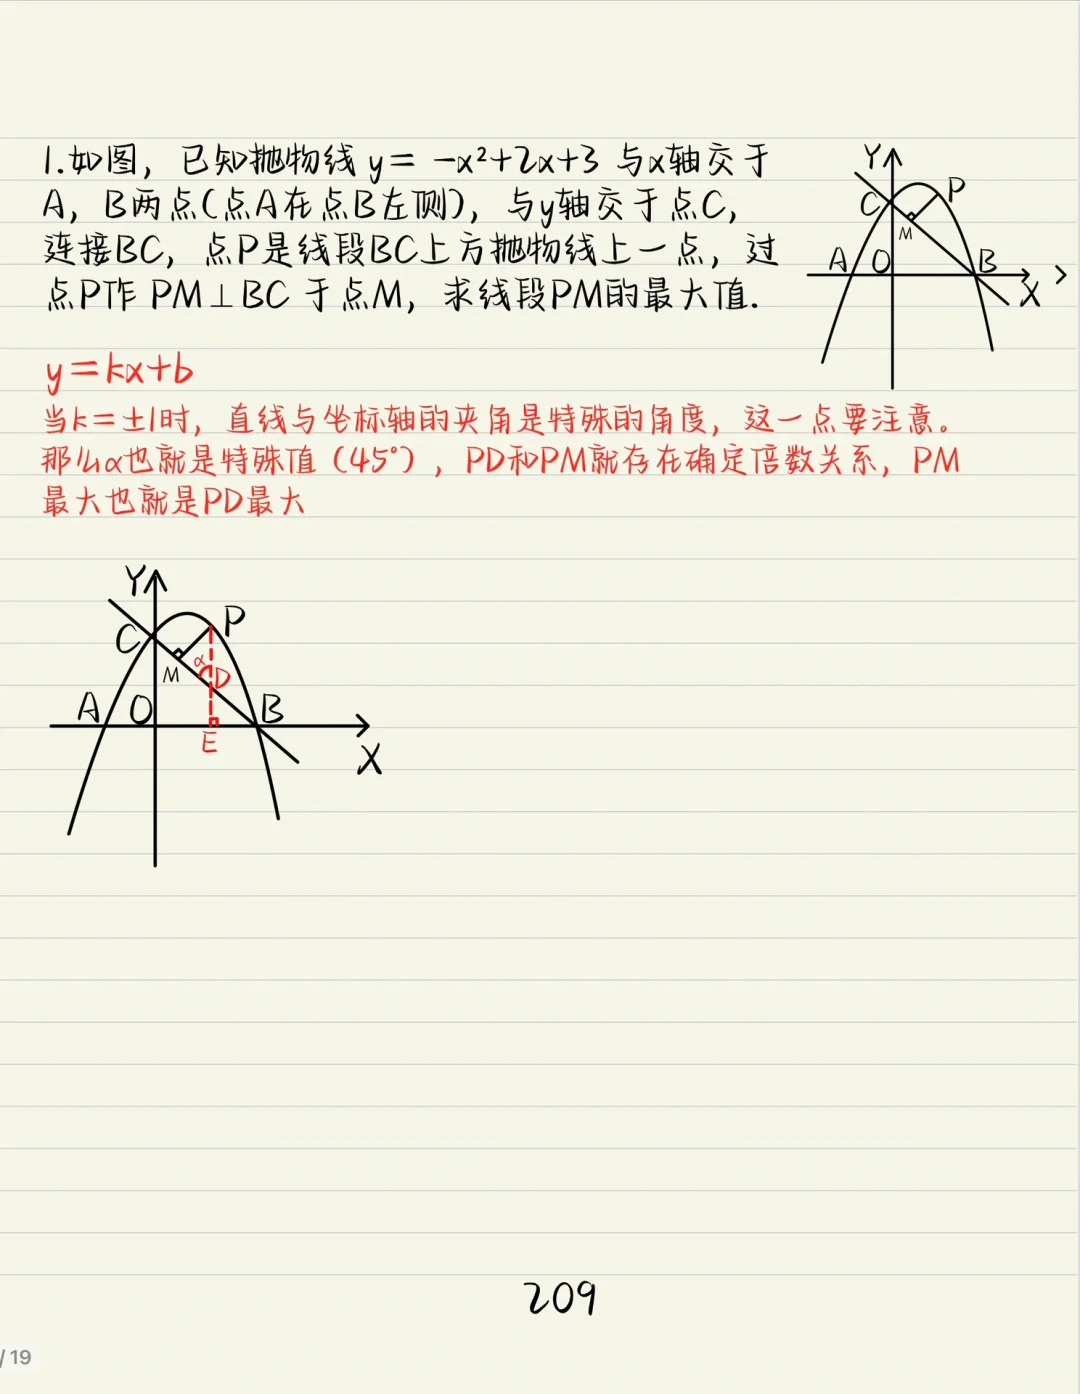 1.如图，已知抛物线 y= -x²+2x+3 与x轴交于
A，B两点(点A在点B左侧)，与y轴交于点C，
连接BC，点P是线段BC上方抛物线上一点，过
点P作 PM⊥BC 于点M，求线段PM的最大值.
Y
C
P
M
A
O
B
X
y=kx+b
当k=±1时，直线与坐标轴的夹角是特殊的角度，这一点要注意。
那么α也就是特殊值（45°），PD和PM就存在确定倍数关系，PM
最大也就是PD最大
Y
C
P
M
α
D
A
O
B
E
X
209
/ 19